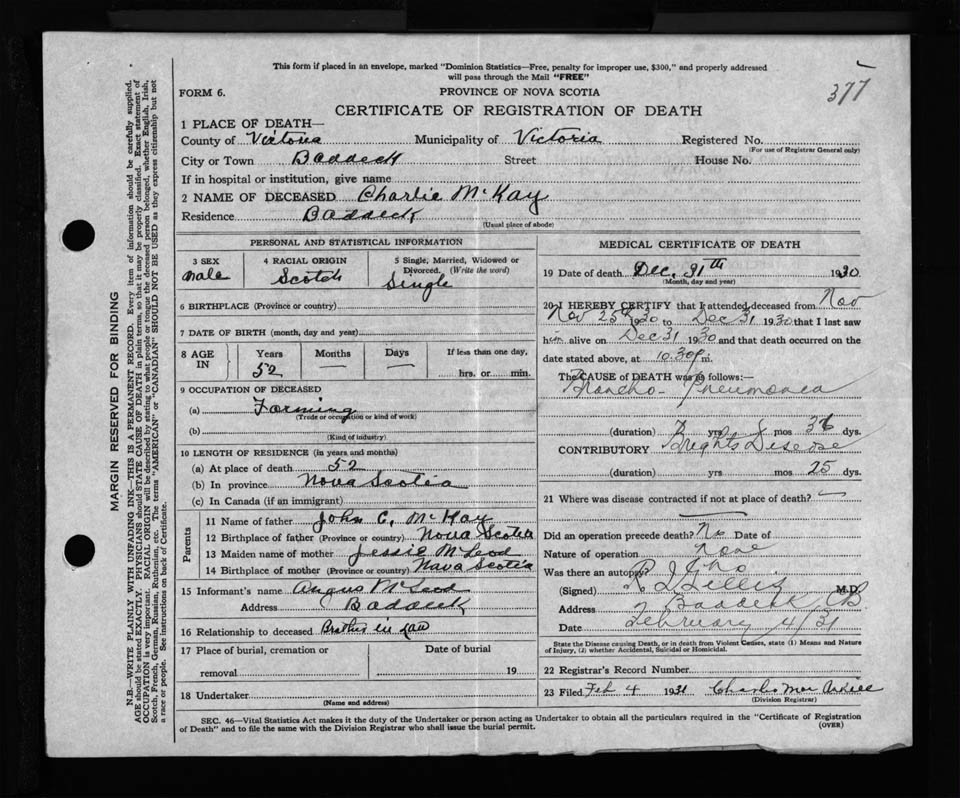 This form if placed in an envelope, marked "Dominion Statistics—Free, penalty for improper use, $300," and properly addressed
will pass through the Mail "FREE"
377
FORM 6.
PROVINCE OF NOVA SCOTIA
CERTIFICATE OF REGISTRATION OF DEATH
1 PLACE OF DEATH—
County of Victoria Municipality of Victoria Registered No.
(For use of Registrar General only)
City or Town Baddeck Street House No.
If in hospital or institution, give name
2 NAME OF DECEASED Charlie McKay
Residence Baddeck
(Usual place of abode)
PERSONAL AND STATISTICAL INFORMATION
3 SEX
Male
4 RACIAL ORIGIN
Scotch
5 Single, Married, Widowed or
Divorced. (Write the word)
Single
6 BIRTHPLACE (Province or country)
7 DATE OF BIRTH (month, day and year)
8 AGE
IN
Years
52
Months
Days
If less than one day,
hrs. or min.
9 OCCUPATION OF DECEASED
(a) Farming
(Trade or occupation or kind of work)
(b)
(Kind of industry)
10 LENGTH OF RESIDENCE (in years and months)
(a) At place of death 52
(b) In province Nova Scotia
(c) In Canada (if an immigrant)
Parents
11 Name of father John C. McKay
12 Birthplace of father (Province or country) Nova Scotia
13 Maiden name of mother Jessie McLeod
14 Birthplace of mother (Province or country) Nova Scotia
15 Informant's name Angus McLeod
Address Baddeck
16 Relationship to deceased Brother in law
17 Place of burial, cremation or
removal
Date of burial
19
18 Undertaker
(Name and address)
MEDICAL CERTIFICATE OF DEATH
19 Date of death Dec. 31th 1930
(Month, day and year)
20 I HEREBY CERTIFY that I attended deceased from Nov
Nov 25th 1930 to Dec 31 1930 that I last saw
him alive on Dec 31 1930 and that death occurred on the
date stated above, at 10.30 p.m.
The CAUSE of DEATH was as follows:—
Broncho-Pneumonea
(duration) yrs mos 36 dys.
CONTRIBUTORY Brights Disease
(duration) yrs mos 25 dys.
21 Where was disease contracted if not at place of death?
Did an operation precede death? No Date of
Nature of operation None
Was there an autopsy? No
(Signed) Gillis M.D.
Address Baddeck CB
Date February 4/31
State the Disease causing Death, or in death from Violent Causes, state (1) Means and Nature
of Injury, (2) whether Accidental, Suicidal or Homicidal.
22 Registrar's Record Number
23 Filed Feb 4 1931 Charles
(Division Registrar)
SEC. 46—Vital Statistics Act makes it the duty of the Undertaker or person acting as Undertaker to obtain all the particulars required in the "Certificate of Registration
of Death" and to file the same with the Division Registrar who shall issue the burial permit.
(OVER)
MARGIN RESERVED FOR BINDING
N.B.—WRITE PLAINLY WITH UNFADING INK—THIS IS A PERMANENT RECORD. Every item of information should be carefully supplied.
AGE should be stated EXACTLY. PHYSICIANS should STATE CAUSE OF DEATH in plain terms, so that it may be properly classified. Exact statement of
OCCUPATION is very important. RACIAL ORIGIN will be described by stating to what people or tongue the deceased person belonged, whether English, Irish,
Scotch, French, German, Russian, Ruthenian, etc. The terms "AMERICAN" or "CANADIAN" SHOULD NOT BE USED as they express citizenship but not
a race or people. See instructions on back of Certificate.